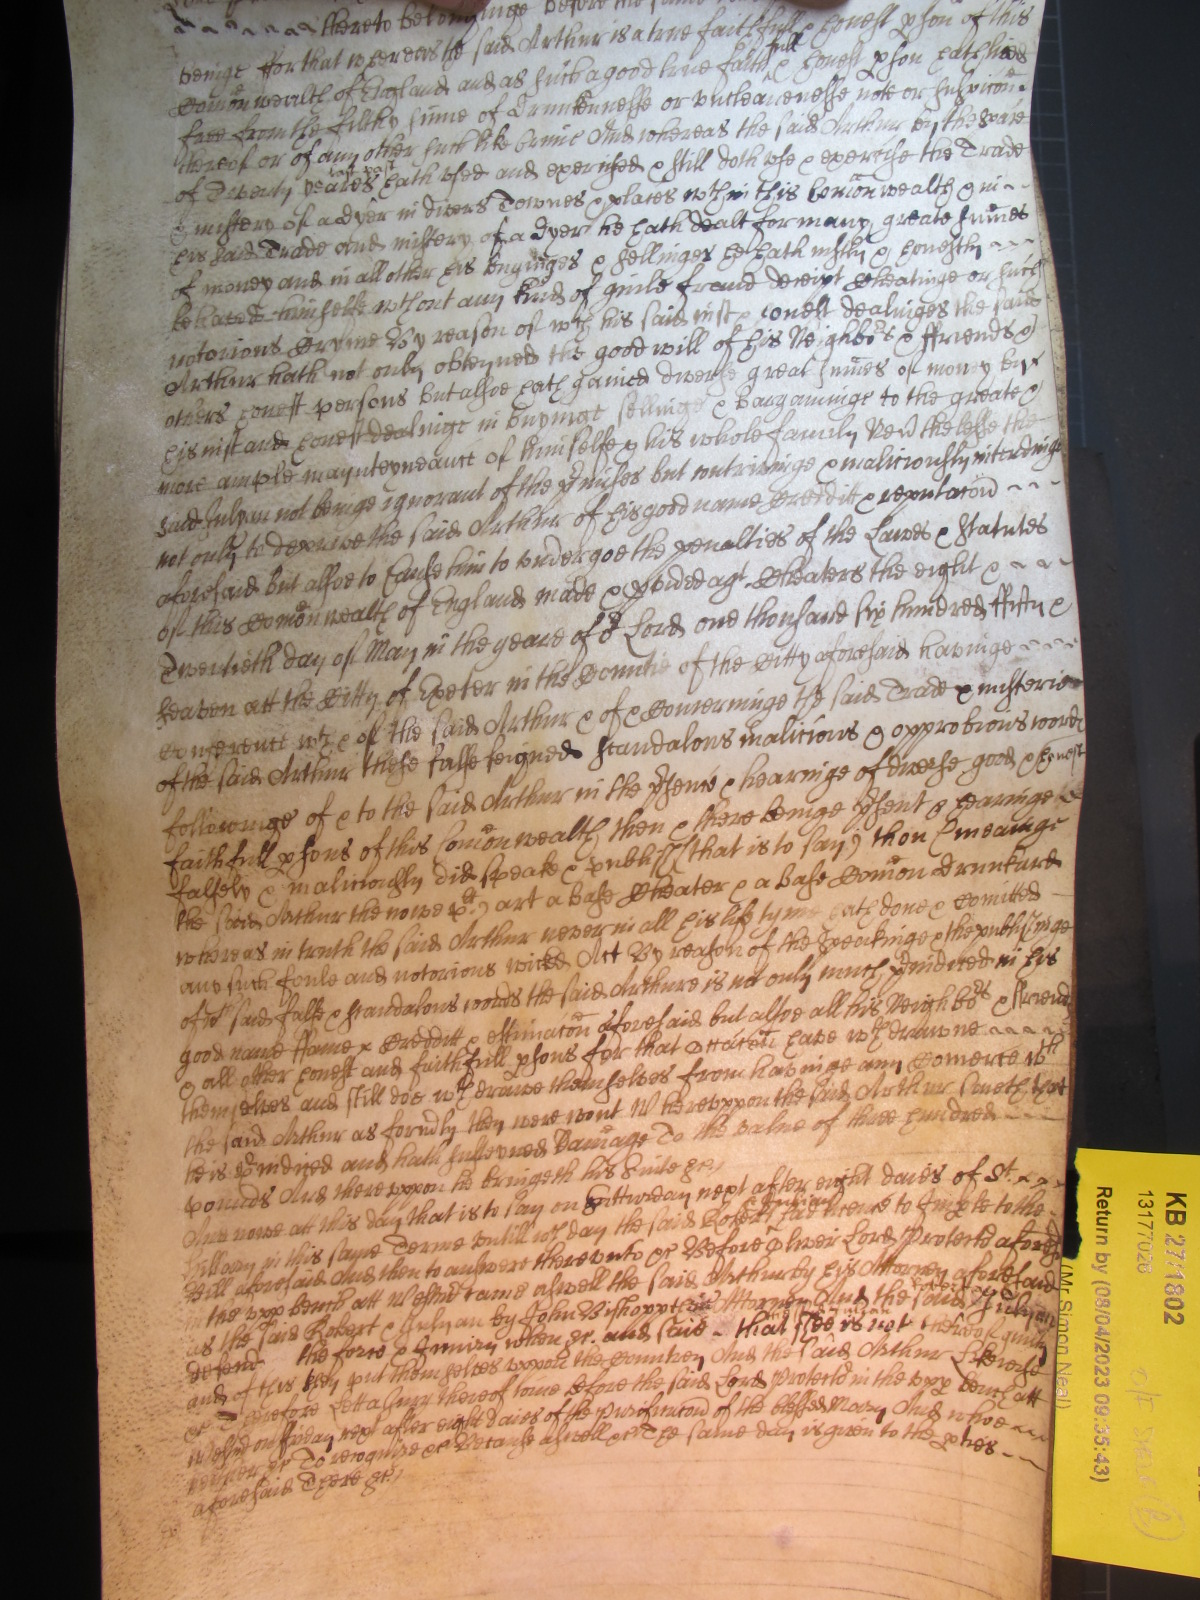 thereto belonginge before the same
beinge ffor that whereas the said Arthur is a true faithfull & honest pson of this
Comon wealth of England and as such a good true faithfull & honest pson hath lived
free from the filthy sinne of Drunkennesse or uncleanenesse note or suspicion
thereof or of any other such like Crime And whereas the said Arthur by the space
of Twenty yeares last past hath used and exercised & still doth use & exercise the Trade
& mistery of a dyer in divers Townes & places wthin this Comon wealth & in
his said Trade and mistery of a Dyer he hath dealt for many great sumes
of money and in all other his buyinges & sellinges he hath justly & honestly
behaved himselfe wthout any kind of guile fraud deceipt Cheatinge or such
notorious Cryme By reason of wch his said just & honest dealinges the said
Arthur hath not only obteyned the good will of his Neighbors & ffriends &
others honest persons but alsoe hath gained diverse great sumes of money by
his just and honest dealinge in buyinge sellinge & bargaininge to the greate &
more ample mayntenance of himselfe & his whole family Nevthelesse the
said Julyan not beinge ignorant of the pmisses but contrivinge & maliciously intendinge
not only to deprive the said Arthur of his good name Creditt & reputacon
aforesaid but alsoe to Cause him to undergoe the penalties of the Lawes & Statutes
of this Comon wealth of England made & pvided agt Cheaters the eight &
Twentieth day of May in the yeare of or Lord one thousand six hundred ffifty &
seaven att the Citty of Exeter in the Countie of the Citty aforesaid havinge
Conference wth & of the said Arthur & of & Concerninge the said Trade & misterie
of the said Arthur these false feigned scandalous malicious & opprobrious words
followinge of & to the said Arthur in the psence & hearinge of diverse good & honest
faithfull psons of this Comon wealth then & there beinge psent & hearinge
falsely & maliciously did speake & publish (that is to say) thou (meaninge
the said Arthur the nowe plt) art a base Cheater & a base Comon drunkard
whereas in truth the said Arthur never in all his life tyme hath done & Comitted
any such foule and notorious wicked Act By reason of the speakinge & the publishinge
of wch said false & scandalous words the said Arthure is not only much piudiced in his
good name ffame & Creditt & estimacon aforesaid but alsoe all his Neighbors & ffriends
& all other honest and faithfull psons for that have wthdrawne
themselves and still doe wthdrawe themselves from havinge any Comerce wth
the said Arthur as formerly they were wont Whereuppon the said Arthur saieth that
he is piudiced and hath susteyned Damage To the value of three hundred
pounds And thereuppon he bringeth his suite &c.
And nowe att this day that is to say on Satturday next after eight daies of St.
Hillary in this same Terme untill wch day the said Robert & Julyan had licence to Imple to the
Bill aforesaid And then to answere thereunto &c Before Oliver Lord Protector aforesaid
in the upp bench att Westmr came aswell the said Arthur by his Attorney aforesaid
as the said Robert & Julyan by John Bishopp their Attorney And the said Robert & Julyan
defend the force & Iniury when &c. and said that shee is not thereof guilty
and of this they put themselves uppon the Countrey And the said Arthur likewise
&c Therefore Lett a Jury thereof come before the said Lord Protector in the upp bench att
Westmr on next after eight daies of the Purificacon of the blessed Mary And whoe
neyther &c To recognize &c Because aswell &c The same day is given to the pties
aforesaid There &c.
KB 27/1802
13177028
Return by (08/04/2023 09:35:43)
(Mr Simon Neal)